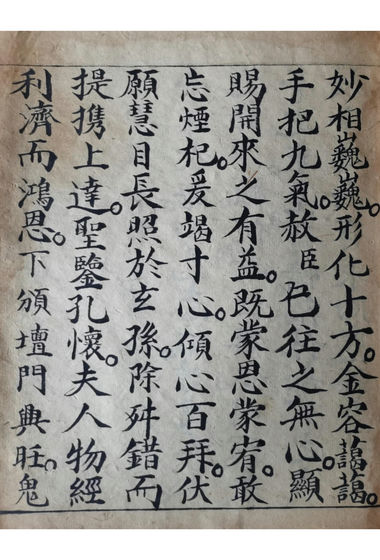 妙相巍巍。形化十方。金容藹藹。
手把九氣。赦臣已往之無心。顯
賜開來之有益。既蒙恩蒙宥。敢
忘煙杞。爰竭寸心。傾心百拜。伏
願慧目長照於玄孫。除舛錯而
提携上達。聖鑒孔懷。夫人物經
利濟而鴻恩。下頒壇門興旺。鬼